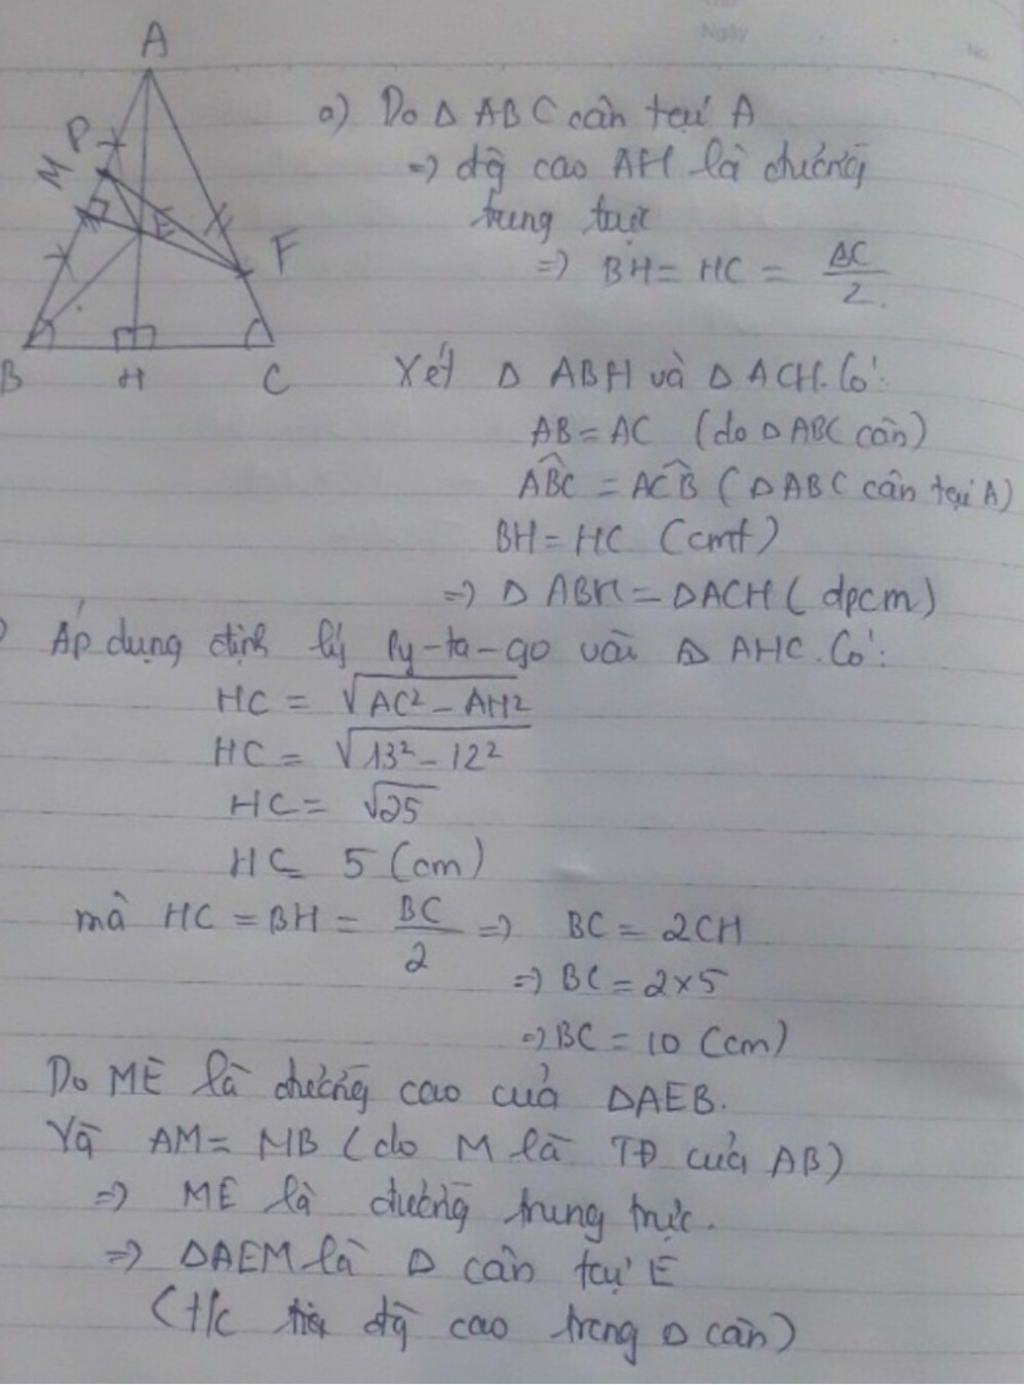 Ngày
No
A
P
M
E
F
B
H
C
a) Do Δ ABC cân tại A
=> độ cao AH là đường
trung trực
=> BH = HC = BC/2.
Xét Δ ABH và Δ ACH. Có:
AB = AC (do Δ ABC cân)
ABC^ = ACB^ (Δ ABC cân tại A)
BH = HC (cmt)
=> Δ ABH = Δ ACH (dpcm)
) Áp dụng định lý Py-ta-go vài Δ AHC. Có:
HC = √AC² - AH²
HC = √13² - 12²
HC = √25
HC = 5 (cm)
mà HC = BH = BC/2 => BC = 2CH
=> BC = 2×5
=> BC = 10 (cm)
Do ME là đường cao của ΔAEB.
Và AM = MB (do M là TĐ của AB)
=> ME là đường trung trực.
=> ΔAEM là Δ cân tại E
(t/c độ cao trong Δ cân)